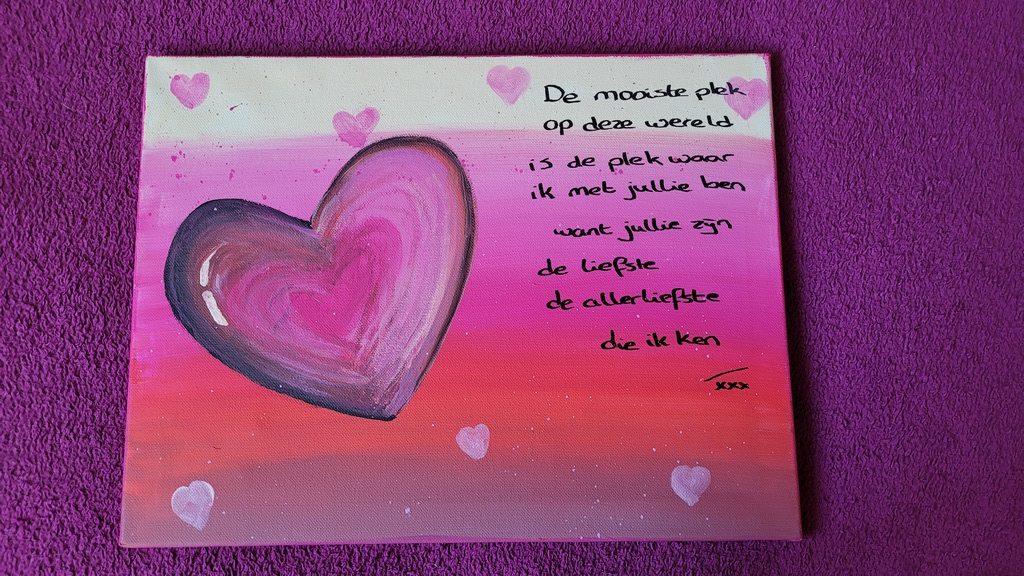 De mooiste plek
op deze wereld
is de plek waar
ik met jullie ben
want jullie zijn
de liefste
de allerliefste
die ik ken
xxx